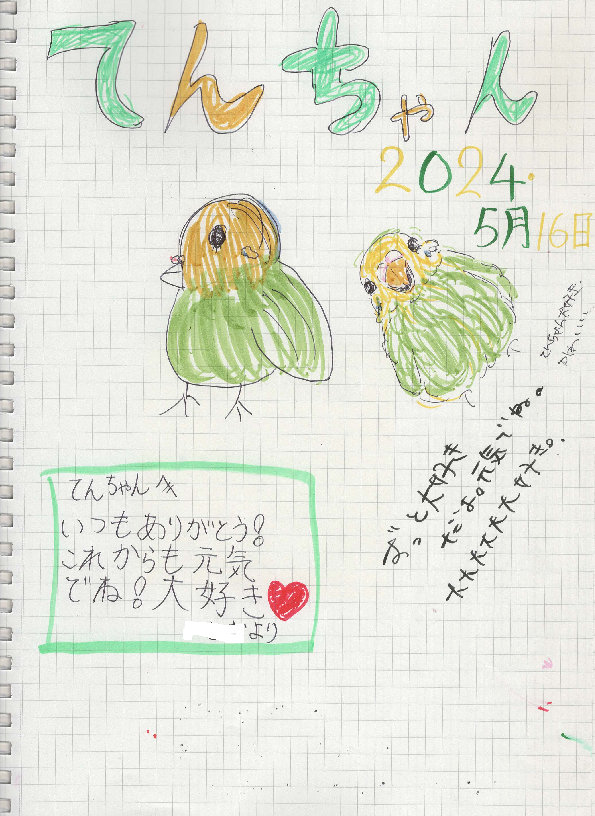 てんちゃん
2024.
5月16日
てんちゃん大好き。
ずっと大好き
だよ。元気でね。
大大大大大大大好き。
てんちゃんへ
いつもありがとう!
これからも元気
でね!大好き
より